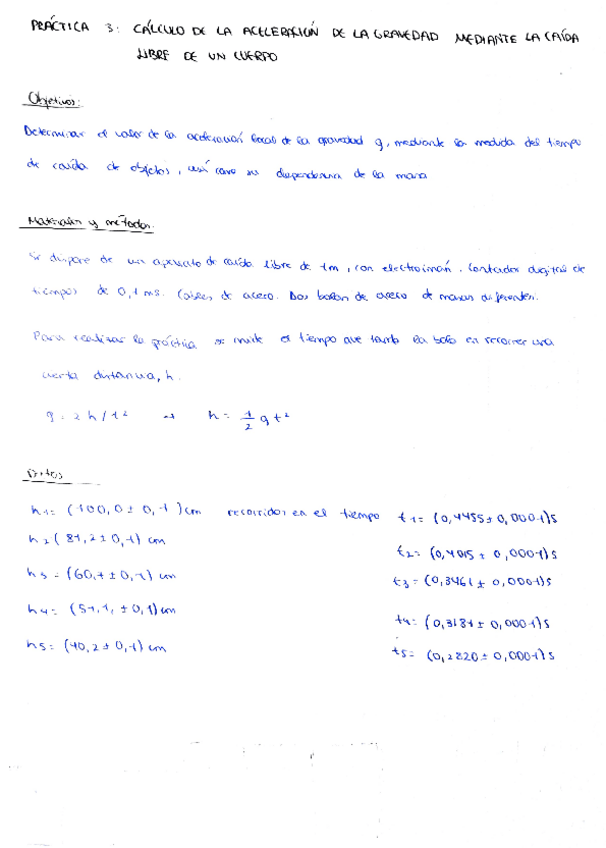 PRÁCTICA 3: CÁLCULO DE LA ACELERACIÓN DE LA GRAVEDAD MEDIANTE LA CAÍDA
LIBRE DE UN CUERPO
Objetivos:
Determinar el valor de la aceleración local de la gravedad g, mediante la medida del tiempo
de caída de objetos, así como su dependencia de la masa
Materiales y métodos.
Se dispone de un aparato de caída libre de 1m, con electroimán. Contador digital de
tiempos de 0,1 ms. Cables de acero. Dos bolas de acero de masas diferentes.
Para realizar la práctica se mide el tiempo que tarda la bola en recorrer una
cierta distancia, h.
g = 2h/t² → h = 1/2 g t²
Datos
h1= (100,0 ± 0,1)cm recorridos en el tiempo t1= (0,4455± 0,0001)s
h2 (81,2 ± 0,1) cm t2= (0,4015 ± 0,0001)s
h3 = (60,1 ± 0,1) cm t3= (0,3461 ± 0,0001)s
h4= (51,1, ± 0,1)cm t4= (0,3181 ± 0,0001)s
h5= (40,2 ± 0,1) cm t5= (0,2820 ± 0,0001)s